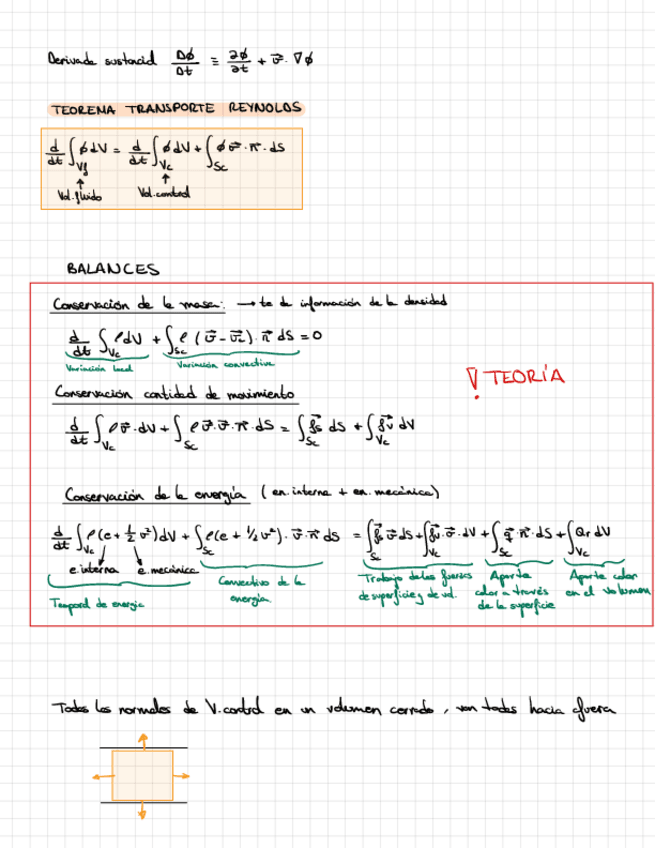 Derivada sustancial Dφ/Dt ≡ ∂φ/∂t + v⃗ · ∇φ
TEOREMA TRANSPORTE REYNOLDS
d/dt ∫_Vf φdV = d/dt ∫_Vc φdV + ∫_Sc φ v⃗ · n⃗ · dS
Vol. fluido Vol. control
BALANCES
Conservación de la masa: → te da información de la densidad
d/dt ∫_Vc ρdV + ∫_Sc ρ (v⃗ - v⃗c) · n⃗ dS = 0
Variación local Variación convectiva
¡TEORÍA
Conservación cantidad de movimiento
d/dt ∫_Vc ρv⃗ · dV + ∫_Sc ρ v⃗ · v⃗ · n⃗ · dS = ∫_Sc f⃗s dS + ∫_Vc f⃗v dV
Conservación de la energía (en. interna + en. mecánica)
d/dt ∫_Vc ρ(e + ½ v²)dV + ∫_Sc ρ(e + ½ v²) · v⃗ · n⃗ dS = ∫_Sc f⃗s · v⃗ dS + ∫_Vc f⃗v · v⃗ · dV + ∫_Sc q⃗ · n⃗ · dS + ∫_Vc Qr dV
e. interna e. mecánica
Temporal de energía Convectivo de la energía Trabajo de las fuerzas de superficie y de vol. Aporte calor a través de la superficie Aporte calor en el volumen
Todas las normales de V. control en un volumen cerrado, van todas hacia afuera